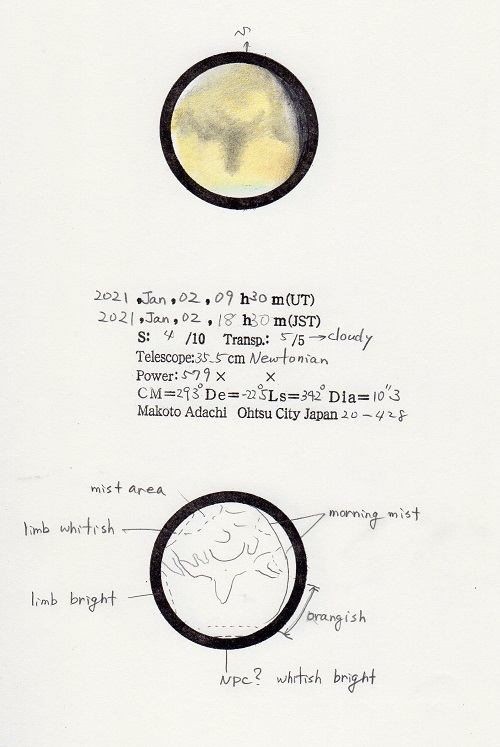 S
2021, Jan, 02, 09 h30 m(UT)
2021, Jan, 02, 18 h30 m(JST)
S: 4 /10 Transp.: 5/5 → cloudy
Telescope:35.5cm Newtonian
Power:579× ×
CM=293° De=-22°.5 Ls=342° Dia=10".3
Makoto Adachi Ohtsu City Japan 20-428
mist area
morning mist
limb whitish
limb bright
orangish
NPC? whitish bright